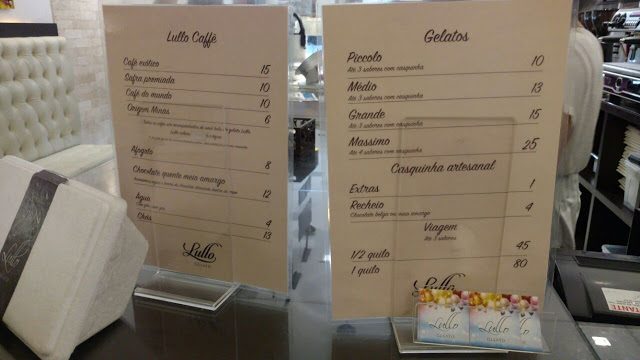 Lullo Caffè
Café exótico 15
Safra premiada 10
Café do mundo 10
Origem Minas 6
Affogato 8
Chocolate quente meio amargo 12
Água 4
Chás 13
Lullo
GELATO
Gelatos
Piccolo 10
Até 3 sabores com casquinha
Médio 13
Até 3 sabores com casquinha
Grande 15
Até 3 sabores com casquinha
Massimo 25
Até 4 sabores com casquinha
Casquinha artesanal
Extras 1
Recheio 4
Chocolate belga ou meio amargo
Viagem
Até 3 sabores
1/2 quilo 45
1 quilo 80
Lullo
Lullo
GELATO